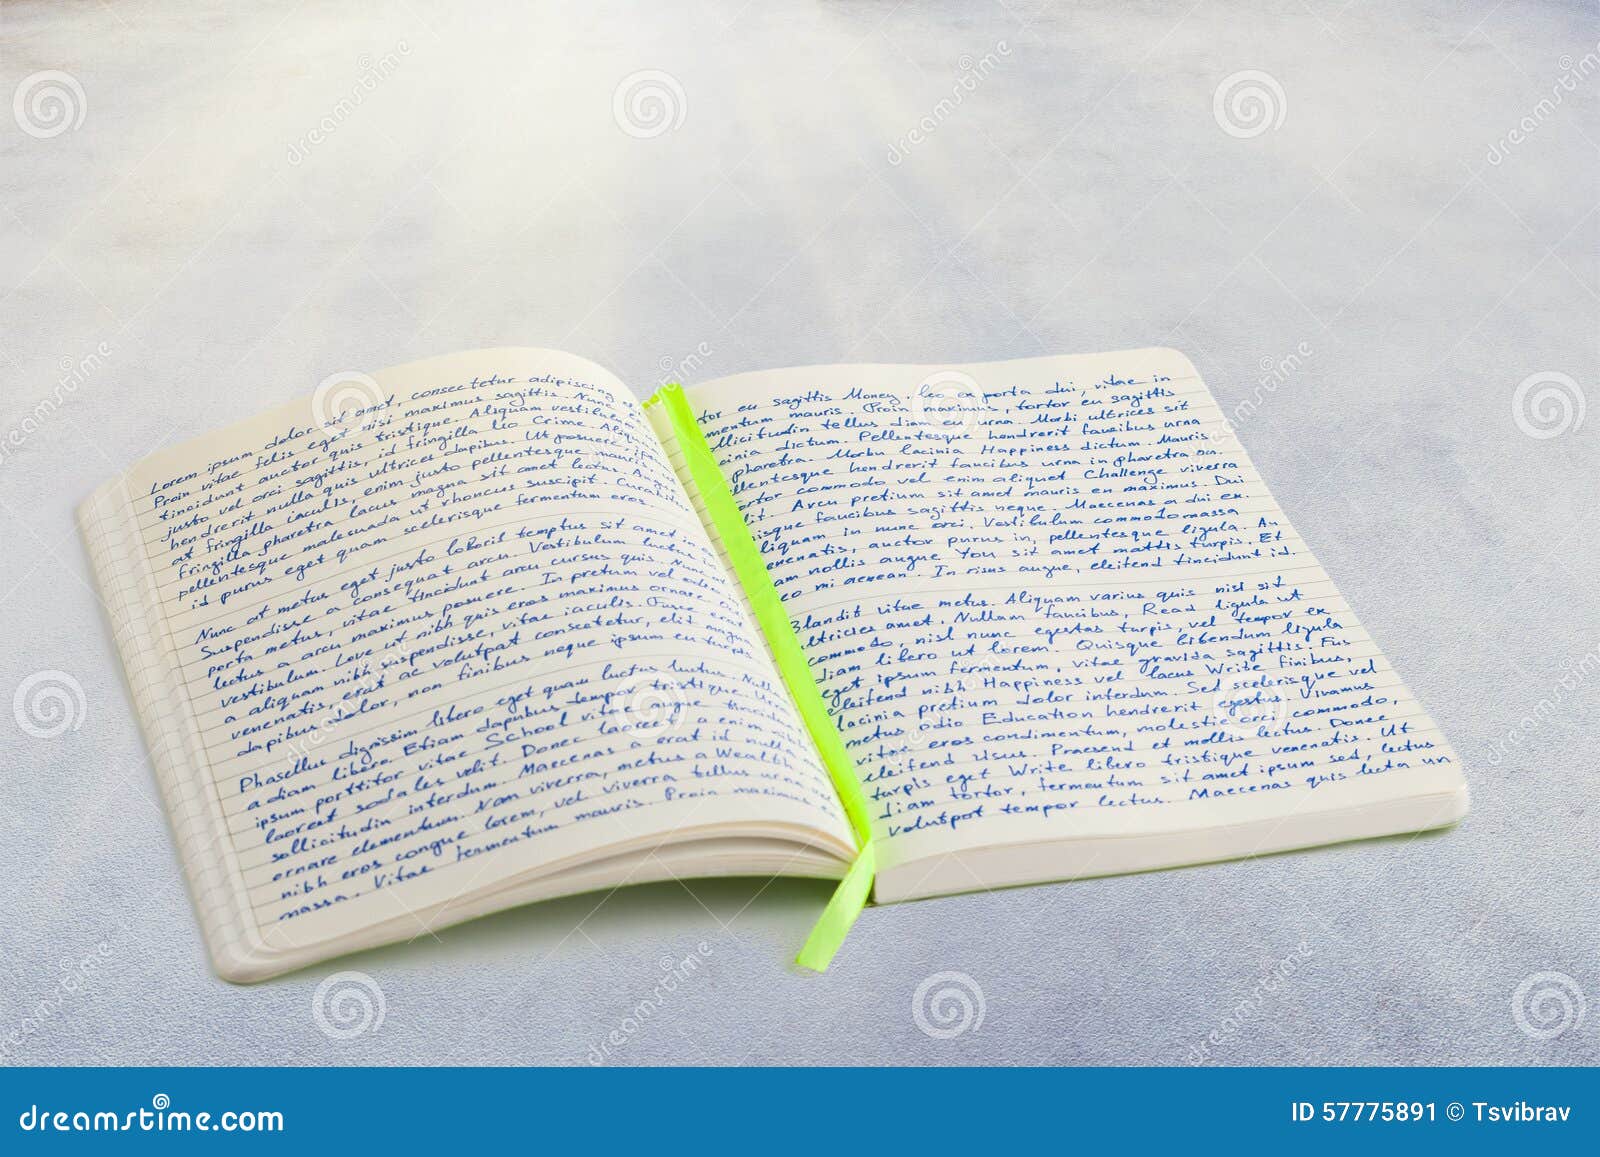 Lorem ipsum dolor sit amet, consectetur adipiscing
Proin vitae felis eget nisi maximus sagittis. Nunc
tincidunt auctor quis tristique. Aliquam vestibulum
justo vel orci sagittis, id fringilla leo Crime Aliquam
hendrerit nulla quis ultrices dapibus. Ut posuere
ut fringilla iaculis, enim justo pellentesque mauris
fringilla pharetra lacus magna sit amet lectus
pellentesque malesuada ut rhoncus suscipit. Curabitur
id purus eget quam scelerisque fermentum eros.
Nunc at metus eget justo loboris temptus sit amet in
Suspendisse a consequat arcu. Vestibulum luctus
porta metus, vitae tincidunt arcu cursus quis. Nunc
lectus a arcu maximus posuere. In pretum vel
vestibulum. Love ut nibh quis eros maximus ornare
a aliquam nibh suspendisse, vitae iaculis. Fusce erat
venenatis, erat ac volutpat consectetur, elit magna
dapibus dolor, non finibus neque ipsum eu turpis
Phasellus dignissim libero eget quam luctus luctus. Nulla
a diam libero. Etiam dapibus tempor tristique.
ipsum porttitor vitae School vitae augue tincidunt
laoreet sodales velit. Donec laoreet a enim nibh
sollicitudin interdum. Maecenas a erat id nullam
ornare elementum. Nam viverra, metus a Wealth
nibh eros congue lorem, vel viverra tellus urna
massa. Vitae fermentum mauris. Proin maximus
tor eu sagittis Money. leo ex porta dui, vitae in
mentum mauris. Proin maximus, tortor eu sagittis
llicitudin tellus diam eu urna. Morbi ultrices sit
cinia dictum. Pellentesque hendrerit faucibus urna
pharetra. Morbu lacinia Happiness dictum. Mauris
llentesque hendrerit faucibus urna in pharetra on.
tortor commodo vel enim aliquet Challenge viverra
lit. Arcu pretium sit amet mauris en maximus. Dui
isque faucibus sagittis neque. Maecenas a dui ex.
liquam in nunc orci. Vestibulum commodo massa
enenatis, auctor purus in, pellentesque ligula. An
am nollis augue You sit amet mattis turpis. Et
eo mi aenean. In risus augue, eleifend tincidunt id.
Blandit vitae metus. Aliquam varius quis nisl sit
ultricies amet. Nullam faucibus, Read ligula ut
commodo, nisl nunc egestas turpis, vel tempor ex
diam libero ut lorem. Quisque bibendum ligula
eget ipsum fermentum, vitae gravida sagittis. Fus
eleifend nibh Happiness vel lacus Write finibus,
lacinia pretium dolor interdum. Sed scelerisque vel
metus odio Education hendrerit egestus. Vivamus
vitae eros condimentum, molestie orci commodo,
eleifend risus. Praesend et mollis lectus. Donec
turpis eget Write libero tristique venenatis. Ut
diam tortor, fermentum sit amet ipsum sed, lectus
volutpot tempor lectus. Maecenas quis lecta un
dreamstime.com
ID 57775891 © Tsvibrav